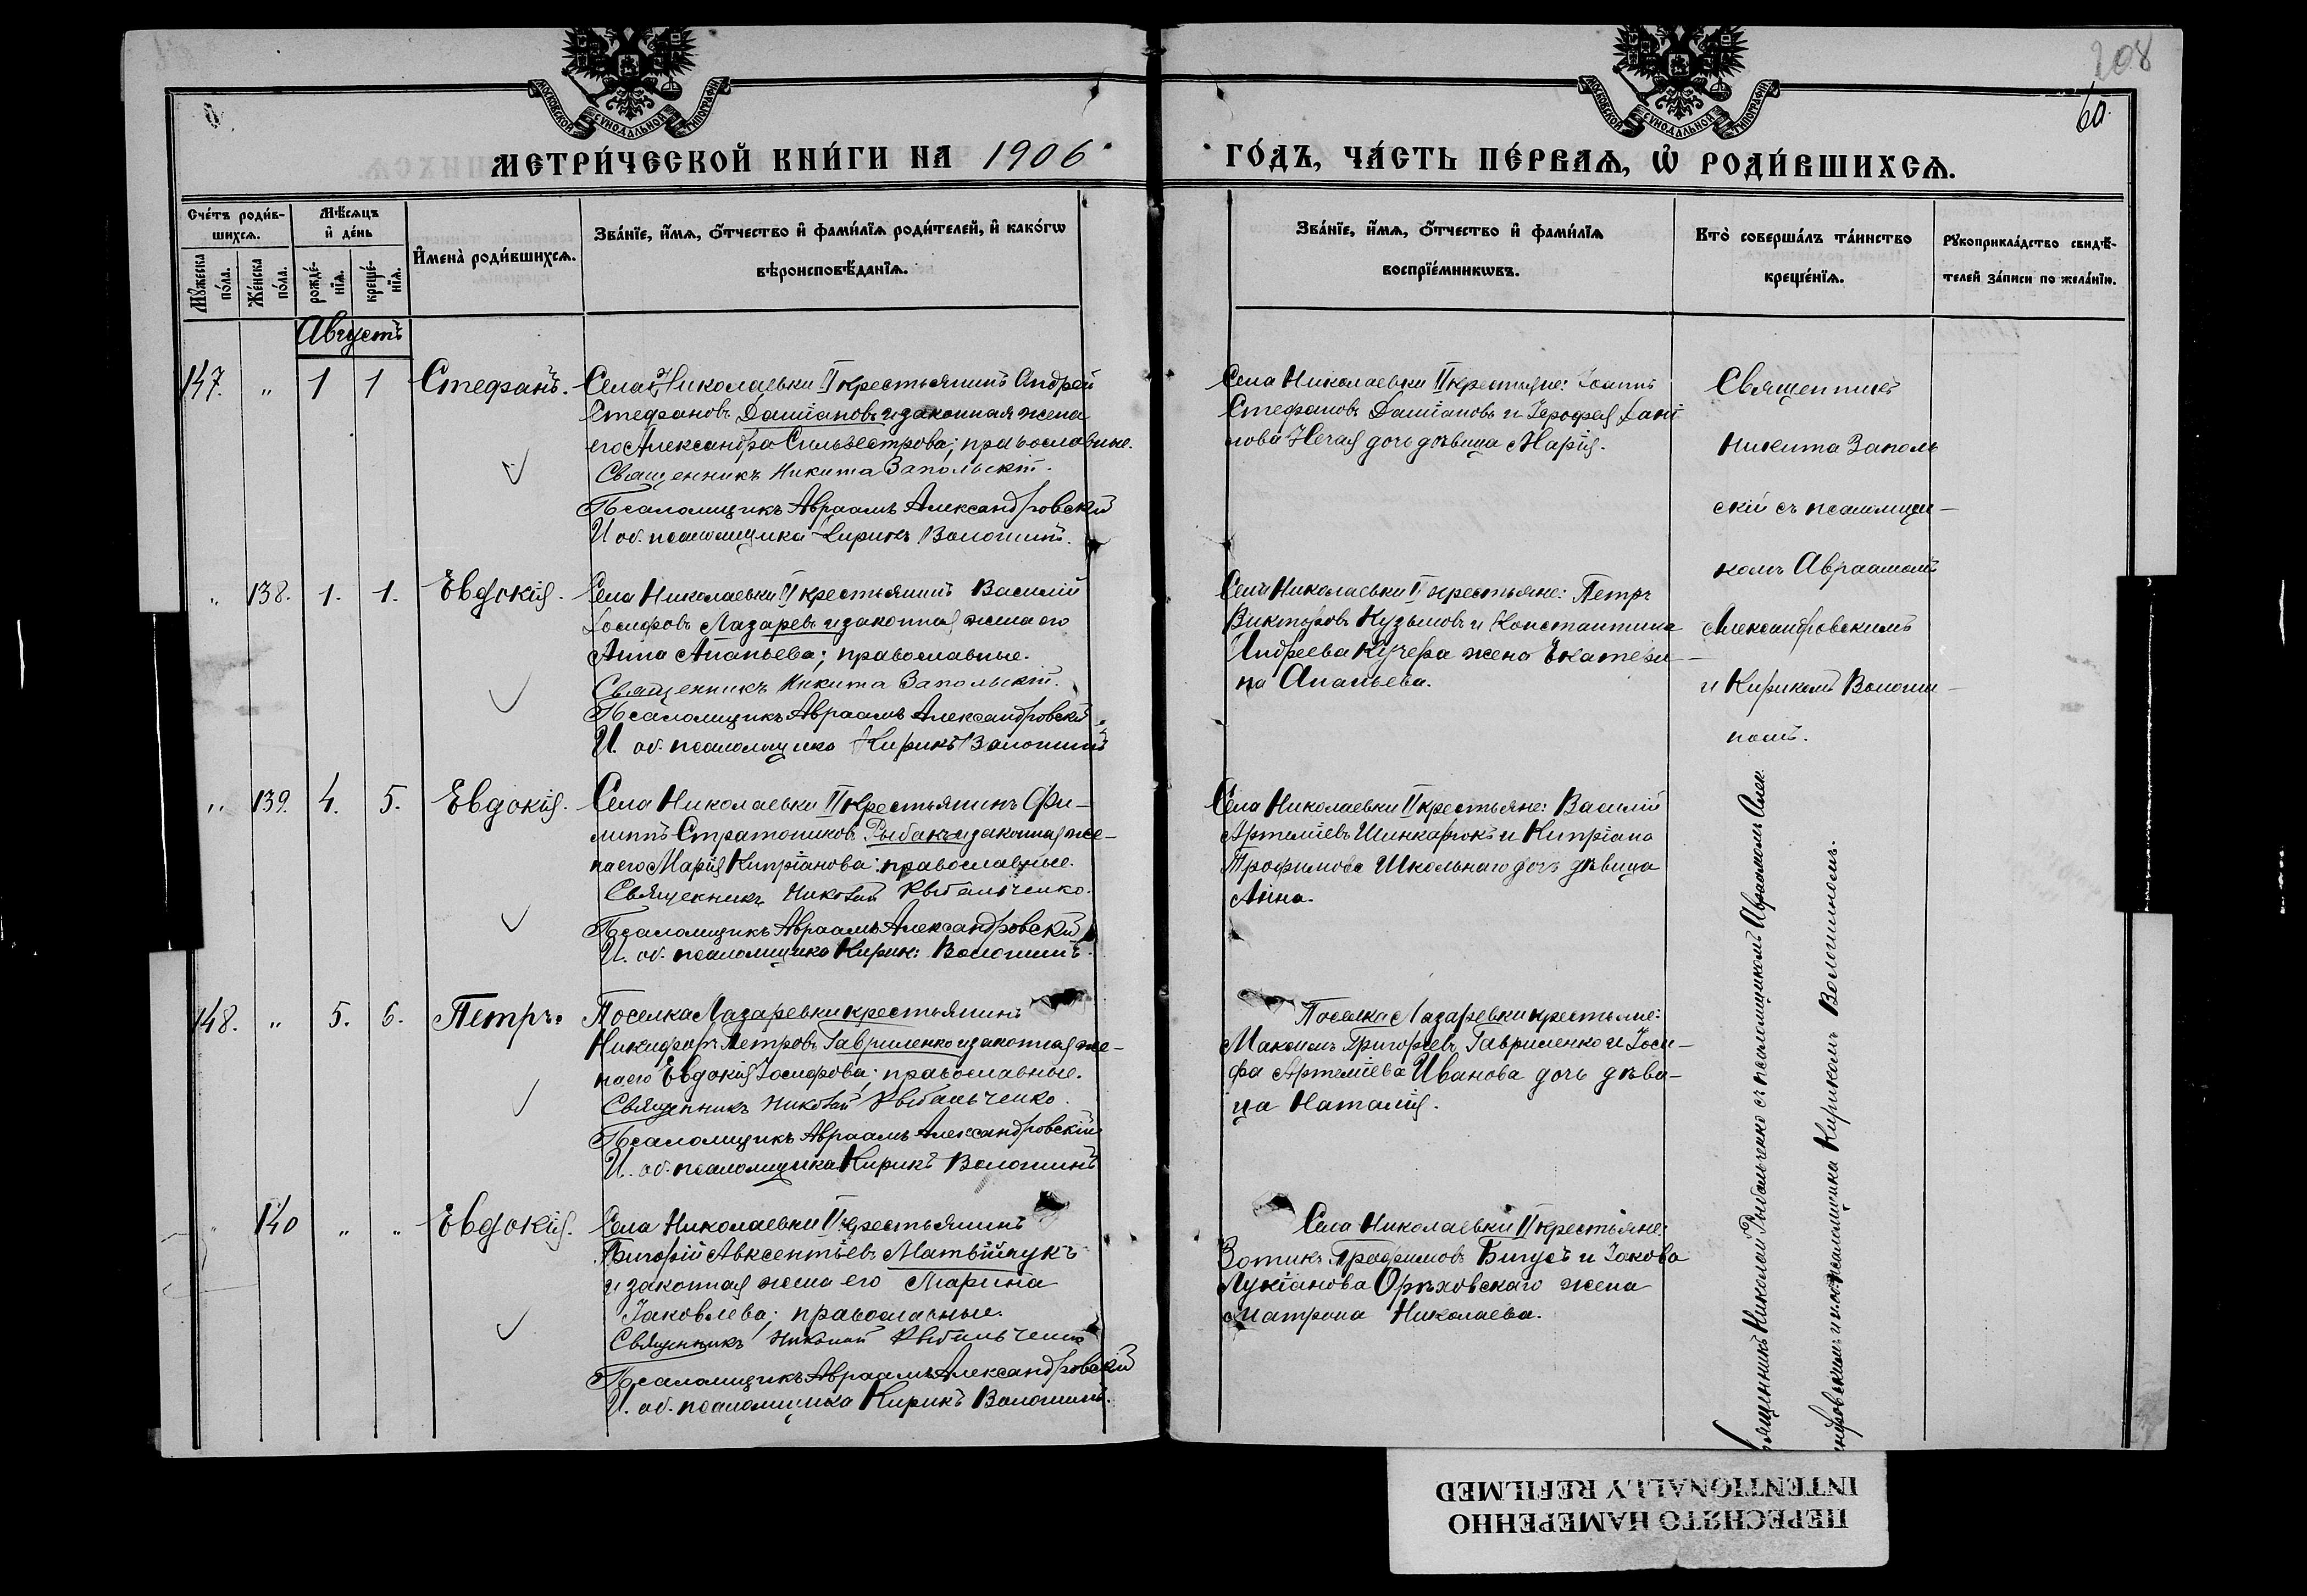 208
60.
МОСКОВСКОЙ СѴНОДАЛЬНОЙ ТИПОГРАФІИ
МОСКОВСКОЙ СѴНОДАЛЬНОЙ ТИПОГРАФІИ
МЕТРИ́ЧЕСКОЙ КНИ́ГИ НА 1906
ГО́ДЪ, ЧА́СТЬ ПЕ́РВАѦ, Ѡ҆ РОДИ́ВШИХСѦ.
Сче́тъ роди́в-
шихсѧ.
Мꙋ́жеска по́ла.
Же́нска по́ла.
Мѣ́сѧцъ
и҆ де́нь
рожде́-
нїѧ.
креще́-
нїѧ.
И҆мена̀ роди́вшихсѧ.
Зва́нїе, и҆́мѧ, ѻ҆́тчество и҆ фами́лїѧ роди́телей, и҆ како́гѡ
вѣроисповѣ́данїѧ.
Зва́нїе, и҆́мѧ, ѻ҆́тчество и҆ фами́лїѧ
воспрїе́мникѡвъ.
Кто̀ соверша́лъ та́инство
креще́нїѧ.
Рꙋкоприкла́дство свидѣ́-
телей за́писи по жела́нїю.
Августъ
147. " 1 1 Стефанъ.
Села Николаевки II крестьянинъ Андрей
Стефановъ Даміановъ и законная жена
его Александра Сильвестрова; православные.
Священникъ Никита Запольскій.
Псаломщикъ Авраамъ Александровскій
И об. псаломщика Кирикъ Волошинъ.
Села Николаевки II крестьяне: Іоаннъ
Стефановъ Даміановъ и Іерофея
дочь дѣвица Марія.
Священникъ
Никита Заполь
скій съ псаломщи-
комъ Авраамомъ
Александровскимъ
и Кирикомъ Волоши-
номъ.
" 138. 1. 1. Евдокія.
Села Николаевки II крестьянинъ Василій
Іосифовъ Лазаревъ и законная жена его
Анна Ананьева; православные.
Священникъ Никита Запольскій.
Псаломщикъ Авраамъ Александровскій
И. об. псаломщика Кирикъ Волошинъ
Села Николаевки II крестьяне: Петръ
Викторовъ Кузьмовъ и Константина
Андреева Кучера жена Екатери-
на Ананьева.
" 139. 4. 5. Евдокія.
Села Николаевки II крестьянинъ Фи-
липпъ Стратониковъ Рыбакъ и законная же-
на его Марія Кипріанова; православные.
Священникъ Николай Рыбальченко.
Псаломщикъ Авраамъ Александровскій
И. об. псаломщика Кирикъ Волошинъ.
Села Николаевки II крестьяне: Василій
Артеміевъ Шинкарюкъ и Кипріана
Трофимова Школьнаго дочь дѣвица
Анна.
148. " 5. 6. Петръ.
Поселка Лазаревки крестьянинъ
Никифоръ Петровъ Гавриленко и законная же-
на его Евдокія Іосифова; православные.
Священникъ Николай Рыбальченко.
Псаломщикъ Авраамъ Александровскій
И. об. псаломщика Кирикъ Волошинъ
Поселка Лазаревки крестьяне:
Максимъ Григорьевъ Гавриленко и Іоси-
фа Артеміева Иванова дочь дѣви-
ца Наталія.
" 140 " " Евдокія.
Села Николаевки II крестьянинъ
Григорій Авксентьевъ Матвійчукъ
и законная жена его Марина
Іаковлева; православные.
Священникъ Николай Рыбальченко
Псаломщикъ Авраамъ Александровскій
И. об. псаломщика Кирикъ Волошинъ.
Села Николаевки II крестьяне:
Зотикъ Трофимовъ Бигусъ и Іакова
Лукіанова Орѣховскаго жена
Матрона Николаева.
Священникъ Николай Рыбальченко съ псаломщикомъ Авраамомъ Алек
сандровскимъ и и. об. псаломщика Кирикомъ Волошиномъ.
ПЕРЕСНЯТО НАМЕРЕННО
INTENTIONALLY REFILMED